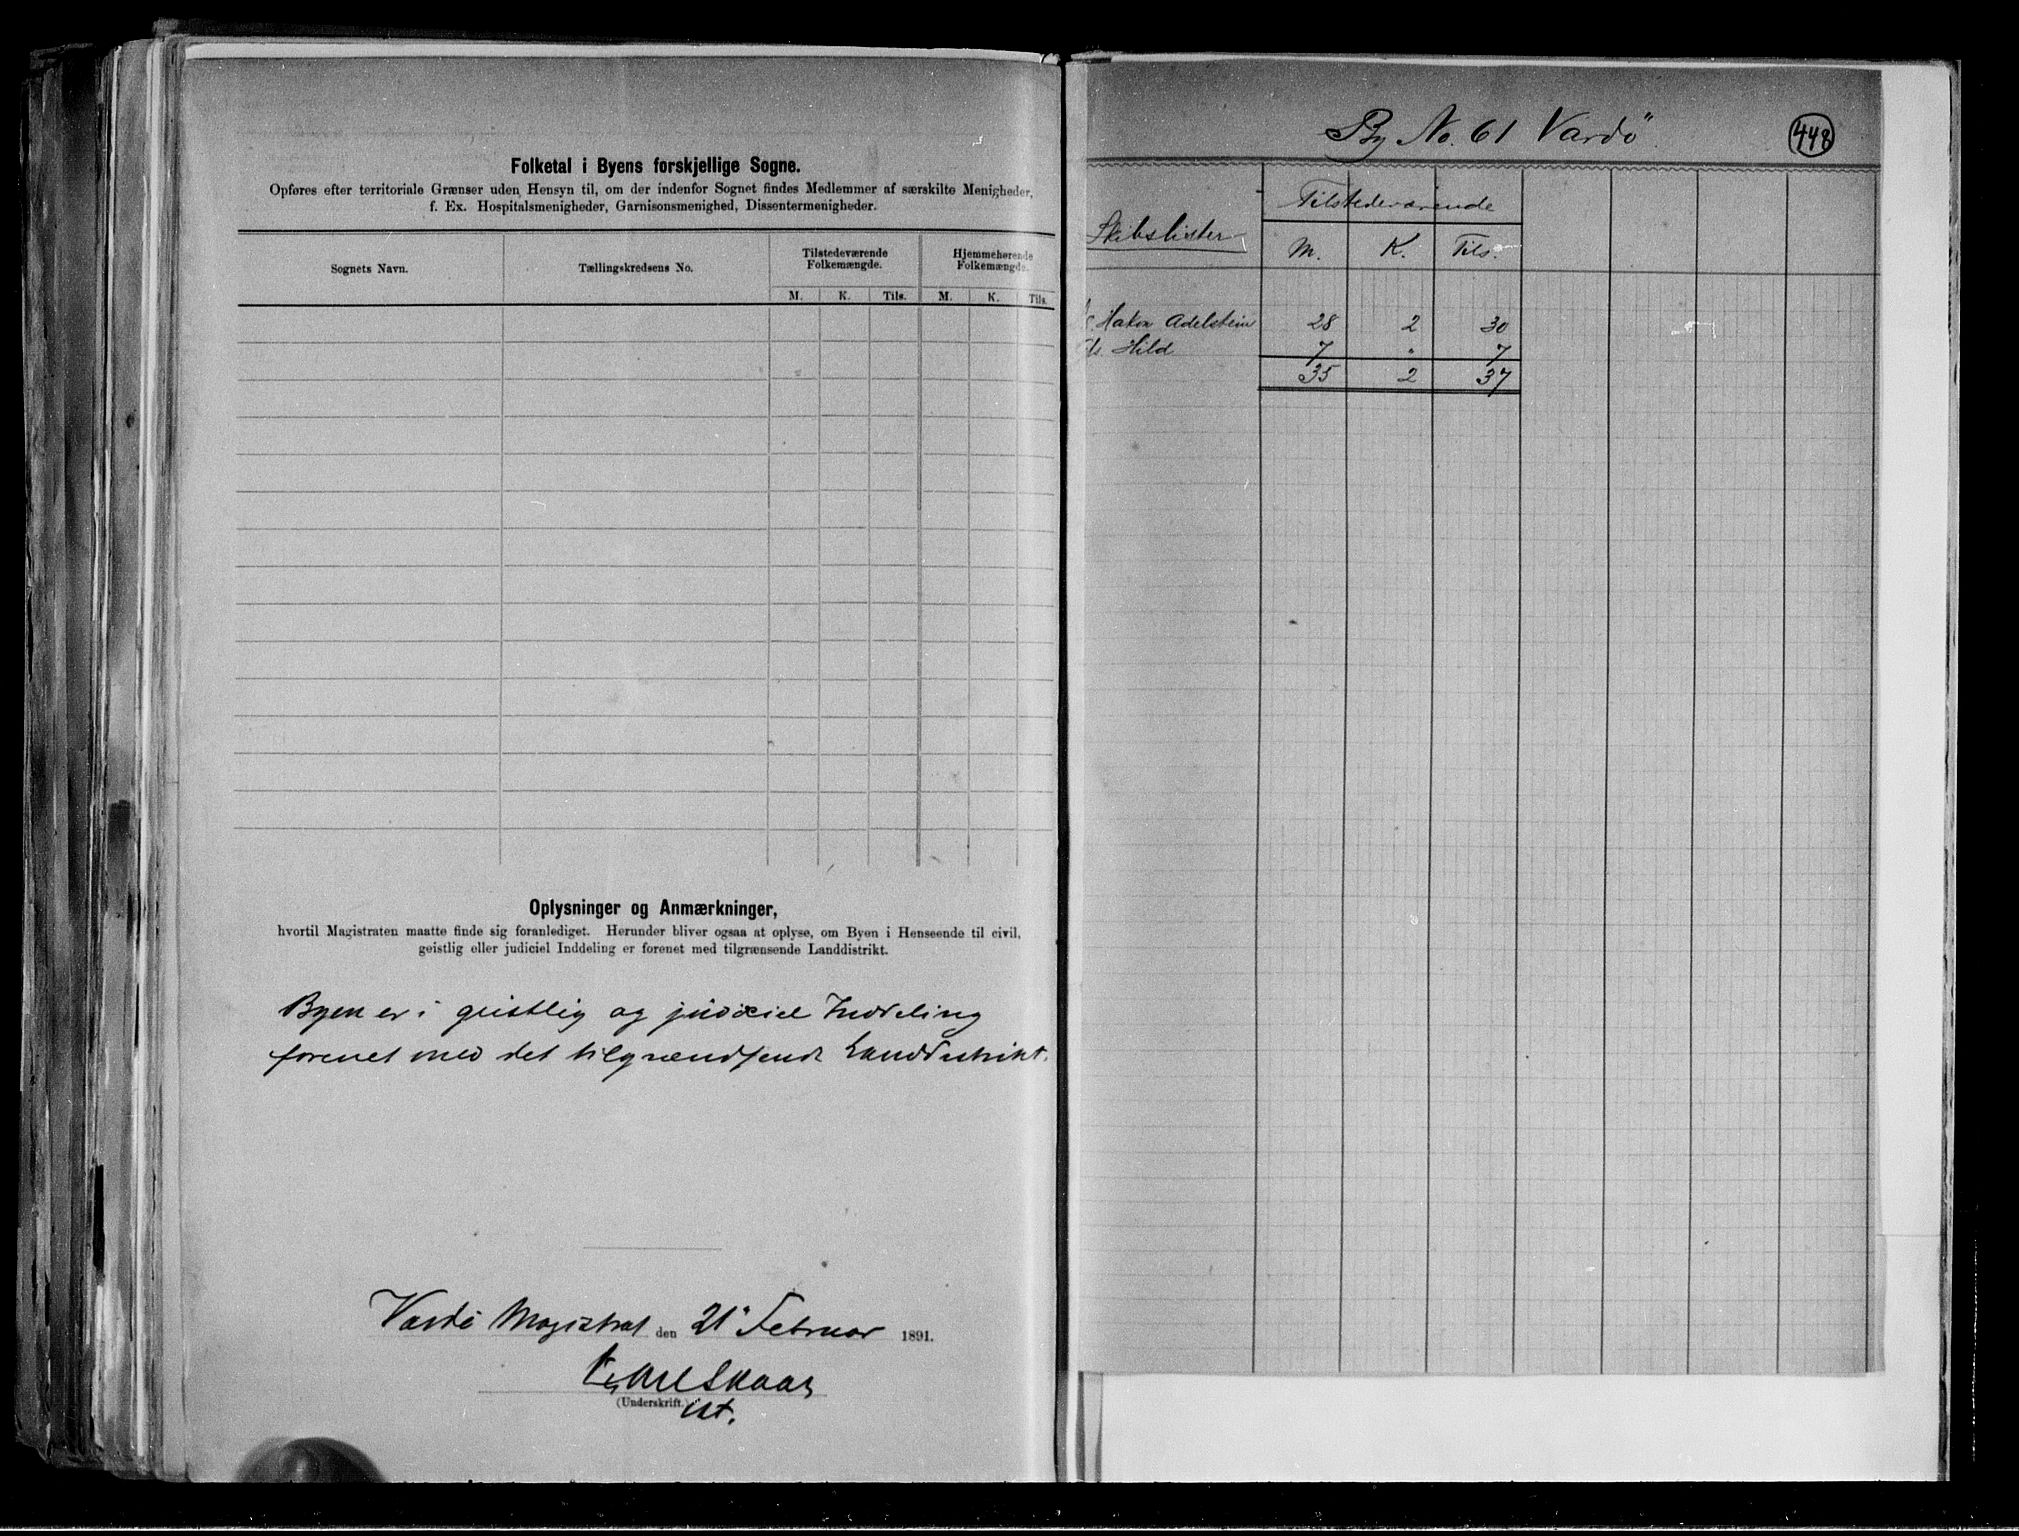 Folketal i Byens forskjellige Sogne.
Opføres efter territoriale Grænser uden Hensyn til, om der indenfor Sognet findes Medlemmer af særskilte Menigheder,
f. Ex. Hospitalsmenigheder, Garnisonsmenighed, Dissentermenigheder.
Sognets Navn.
Tællingskredsens No.
Tilstedeværende
Folkemængde.
Hjemmehørende
Folkemængde.
M. K. Tils. M. K. Tils.
Oplysninger og Anmærkninger,
hvortil Magistraten maatte finde sig foranlediget. Herunder bliver ogsaa at oplyse, om Byen i Henseende til civil,
geistlig eller judiciel Inddeling er forenet med tilgrænsende Landdistrikt.
Byen er i geistlig og judiciel Inddeling
forenet med det tilgrændsende Landdistrikt.
Vardö Magistrat den 21 Februar 1891.
(Underskrift.)
cst.
By No. 61 Vardö
448
Skibslister
Tilstedeværende
M. K. Tils.
Hakon Adelstein 28 2 30
Hild 7 " 7
35 2 37